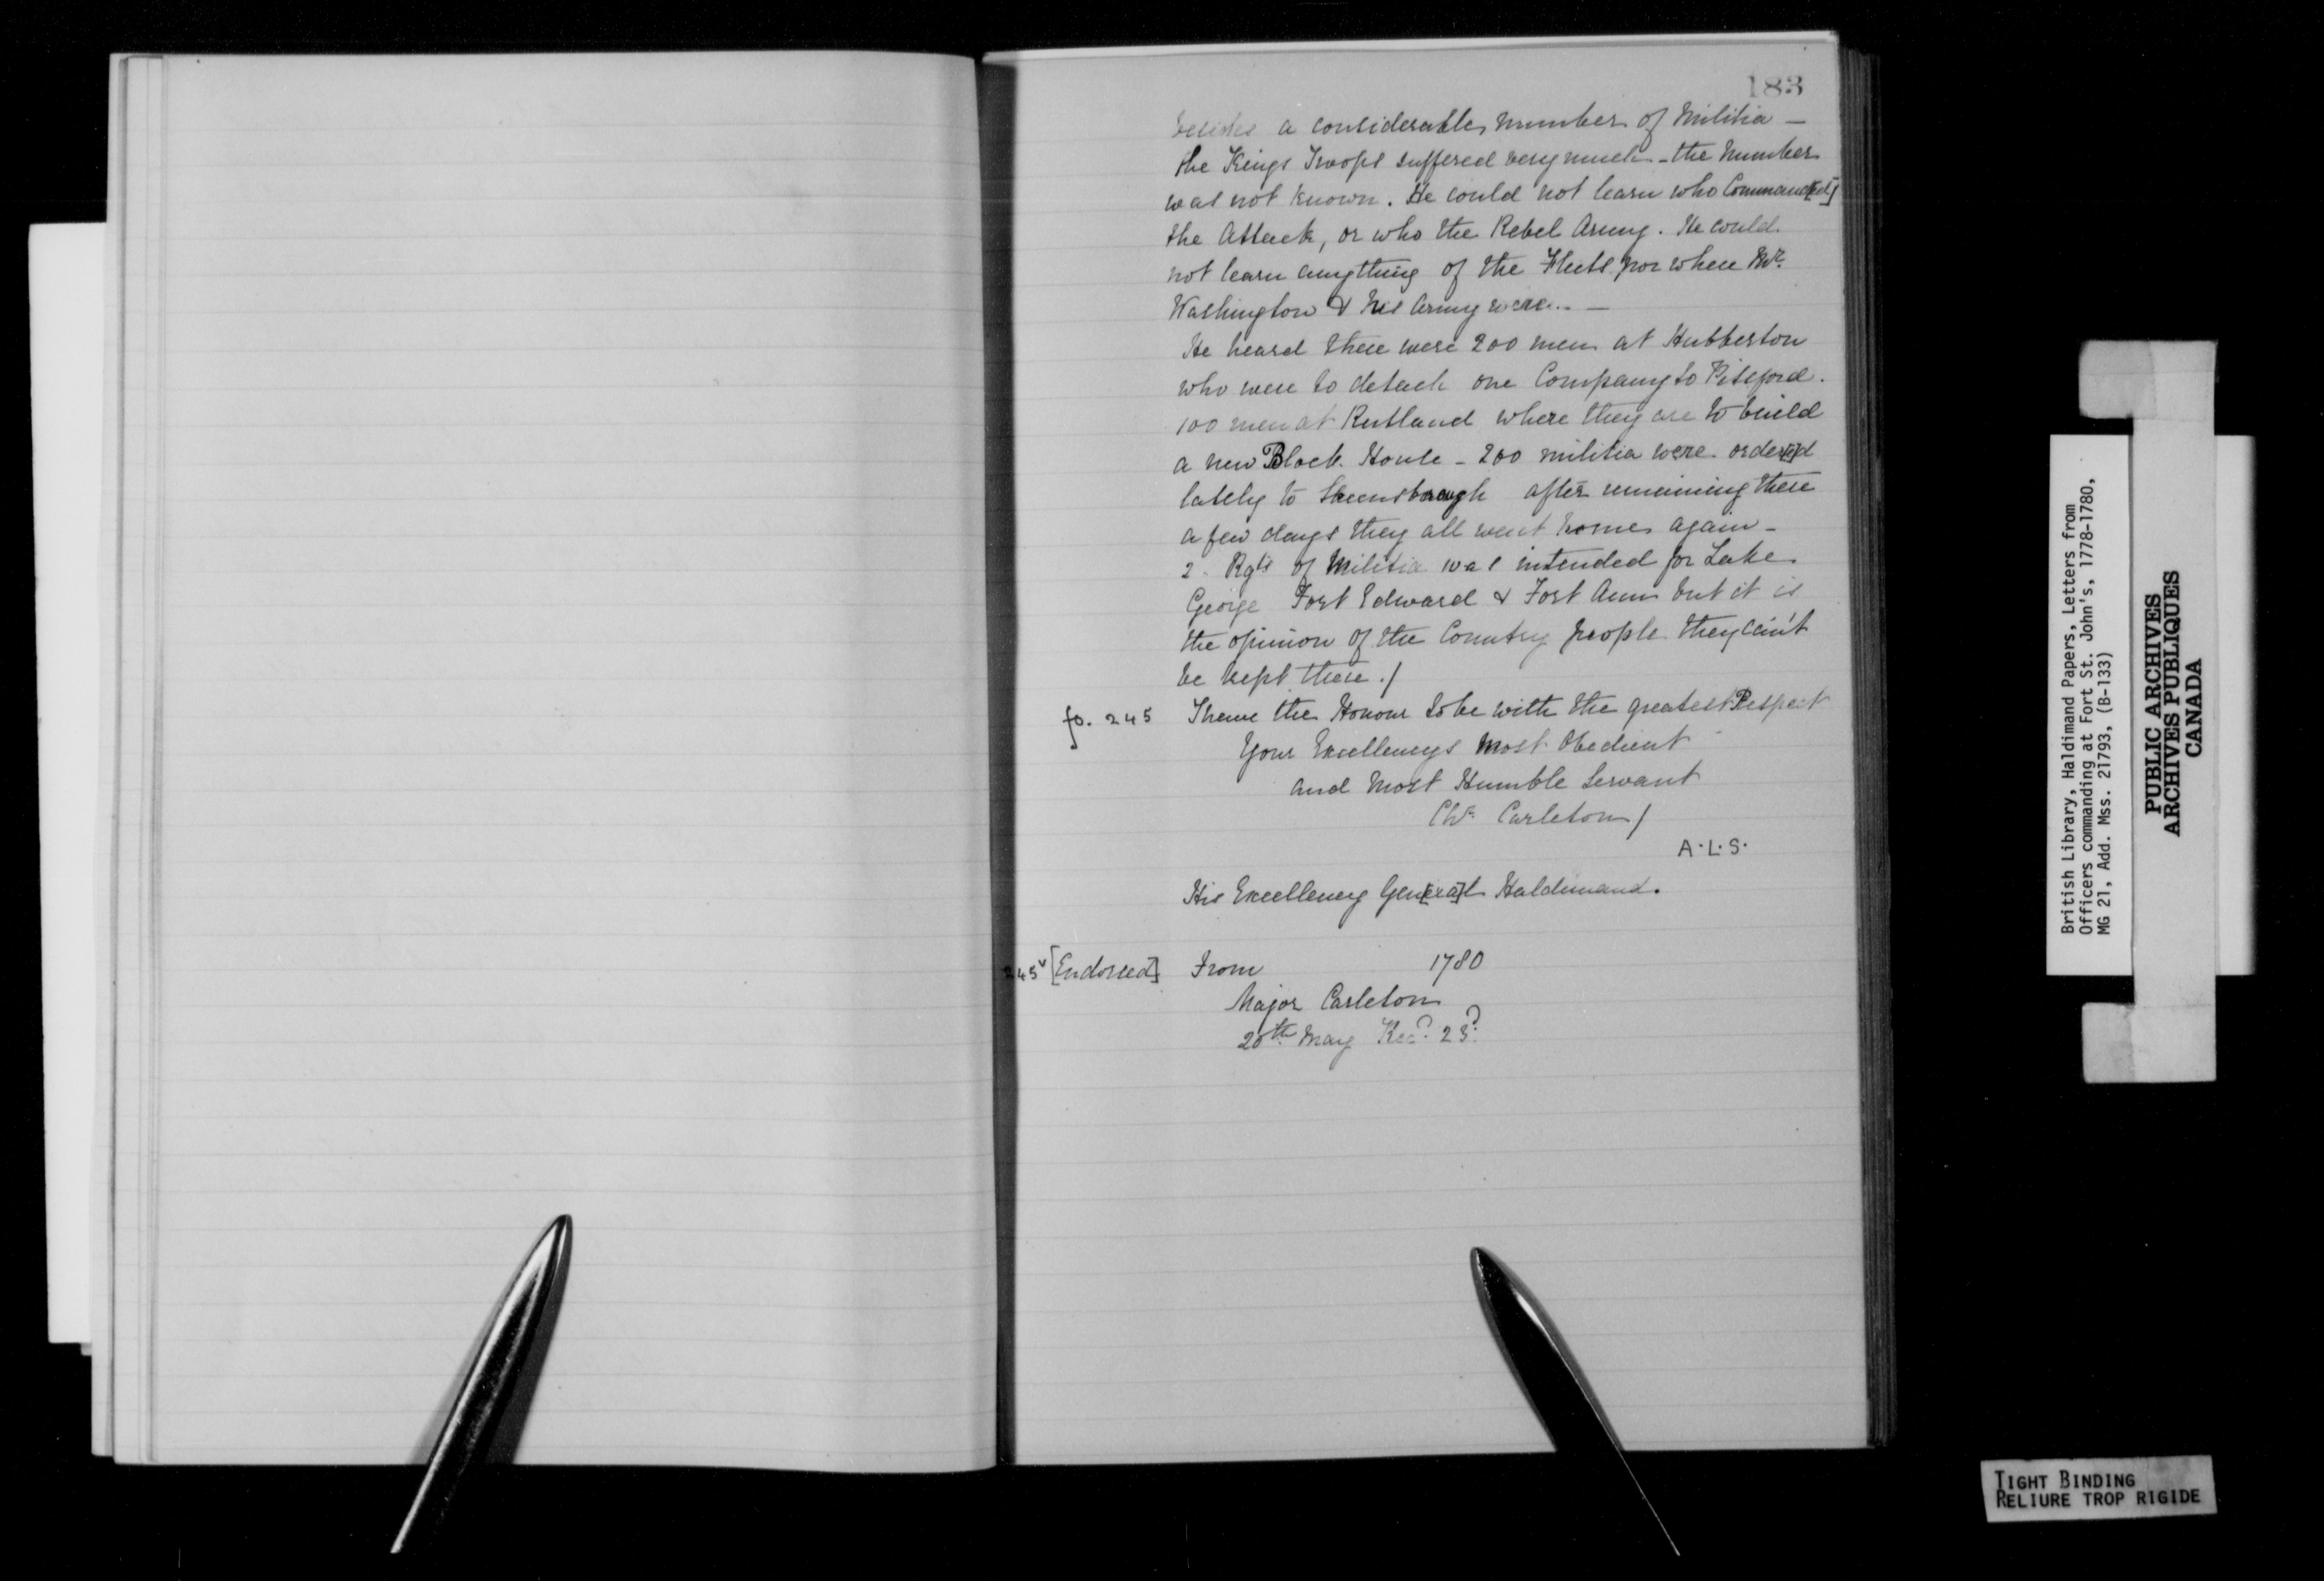 183
besides a considerable number of Militia —
the Kings Troops suffered very much - the number
was not known. He could not learn who Command[ed]
the Attack, or who the Rebel Army. He could
not learn anything of the Fleets nor where Mr.
Washington & his Army were. —
He heard there were 200 men at Hubberton
who were to detach one Company to Pitsford.
100 men at Rutland where they are to build
a new Block House - 200 militia were order[e]d
lately to Skeensborough after remaining there
a few days they all went home again -
2 Rgts of Militia was intended for Lake
George Fort Edward & Fort Ann but it is
the opinion of the Country people they can't
be kept there ./
fo. 245 I have the Honour to be with the greatest Respect
Your Excellencys Most Obedient
and Most Humble Servant
Chr. Carleton /
A.L.S.
His Excellency Gen[era]l Haldimand.
245v [Endorsed] From 1780
Major Carleton
20th May Recd. 23d.
British Library, Haldimand Papers, Letters from
Officers commanding at Fort St. John's, 1778-1780,
MG 21, Add. Mss. 21793, (B-133)
PUBLIC ARCHIVES
ARCHIVES PUBLIQUES
CANADA
TIGHT BINDING
RELIURE TROP RIGIDE